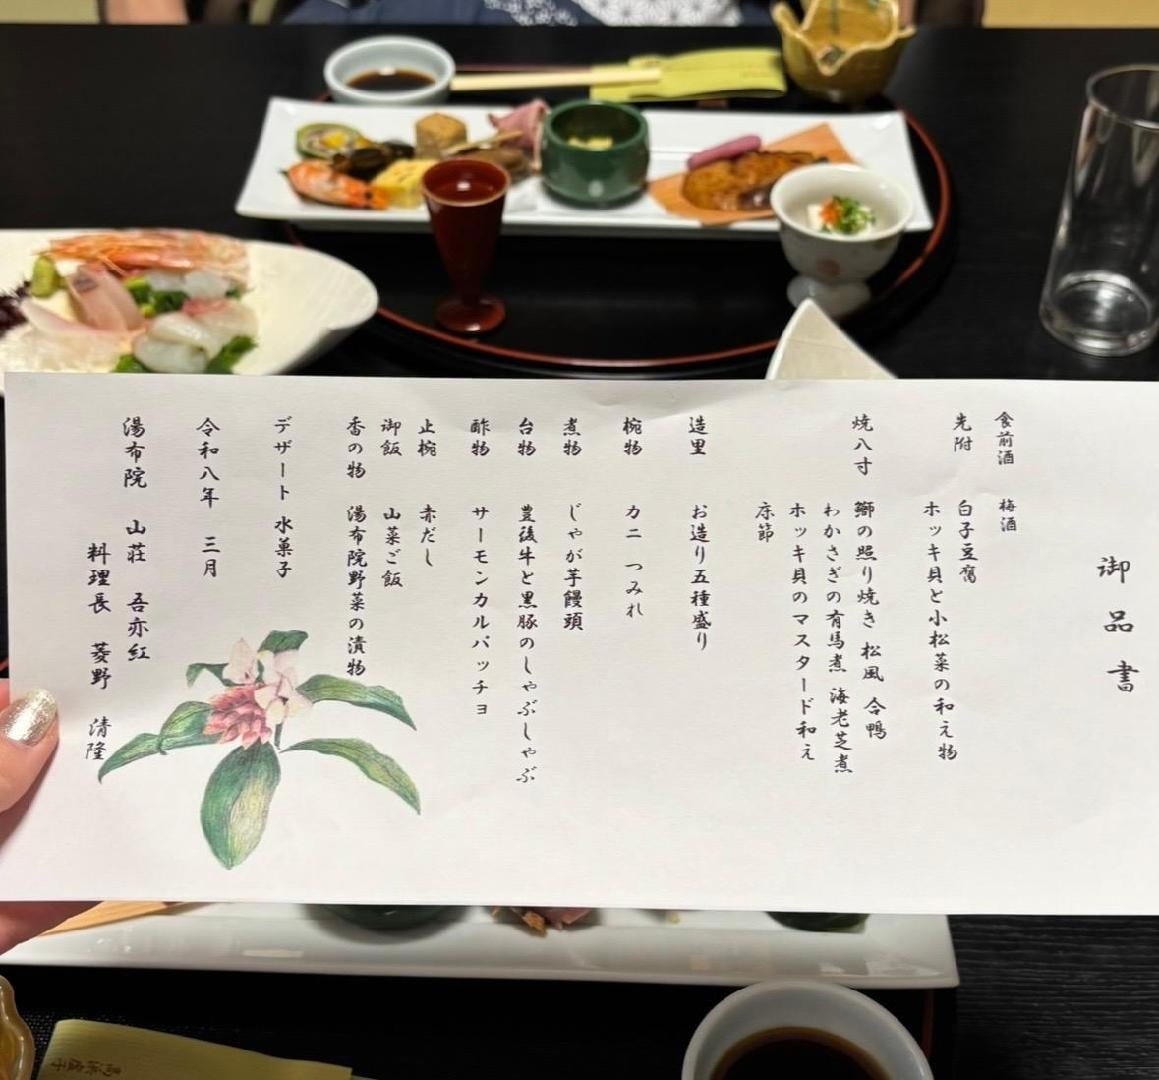 御品書
食前酒 梅酒
先附 白子豆腐
ホッキ貝と小松菜の和え物
焼八寸 鰤の照り焼き 松風 合鴨
わかさぎの有馬煮 海老芝煮
ホッキ貝のマスタード和え
床節
造里 お造り五種盛り
椀物 カニつみれ
煮物 じゃが芋饅頭
台物 豊後牛と黒豚のしゃぶしゃぶ
酢物 サーモンカルパッチョ
止椀 赤だし
御飯 山菜ご飯
香の物 湯布院野菜の漬物
デザート 水菓子
令和八年 三月
湯布院 山荘 吾亦紅
料理長 菱野 清隆